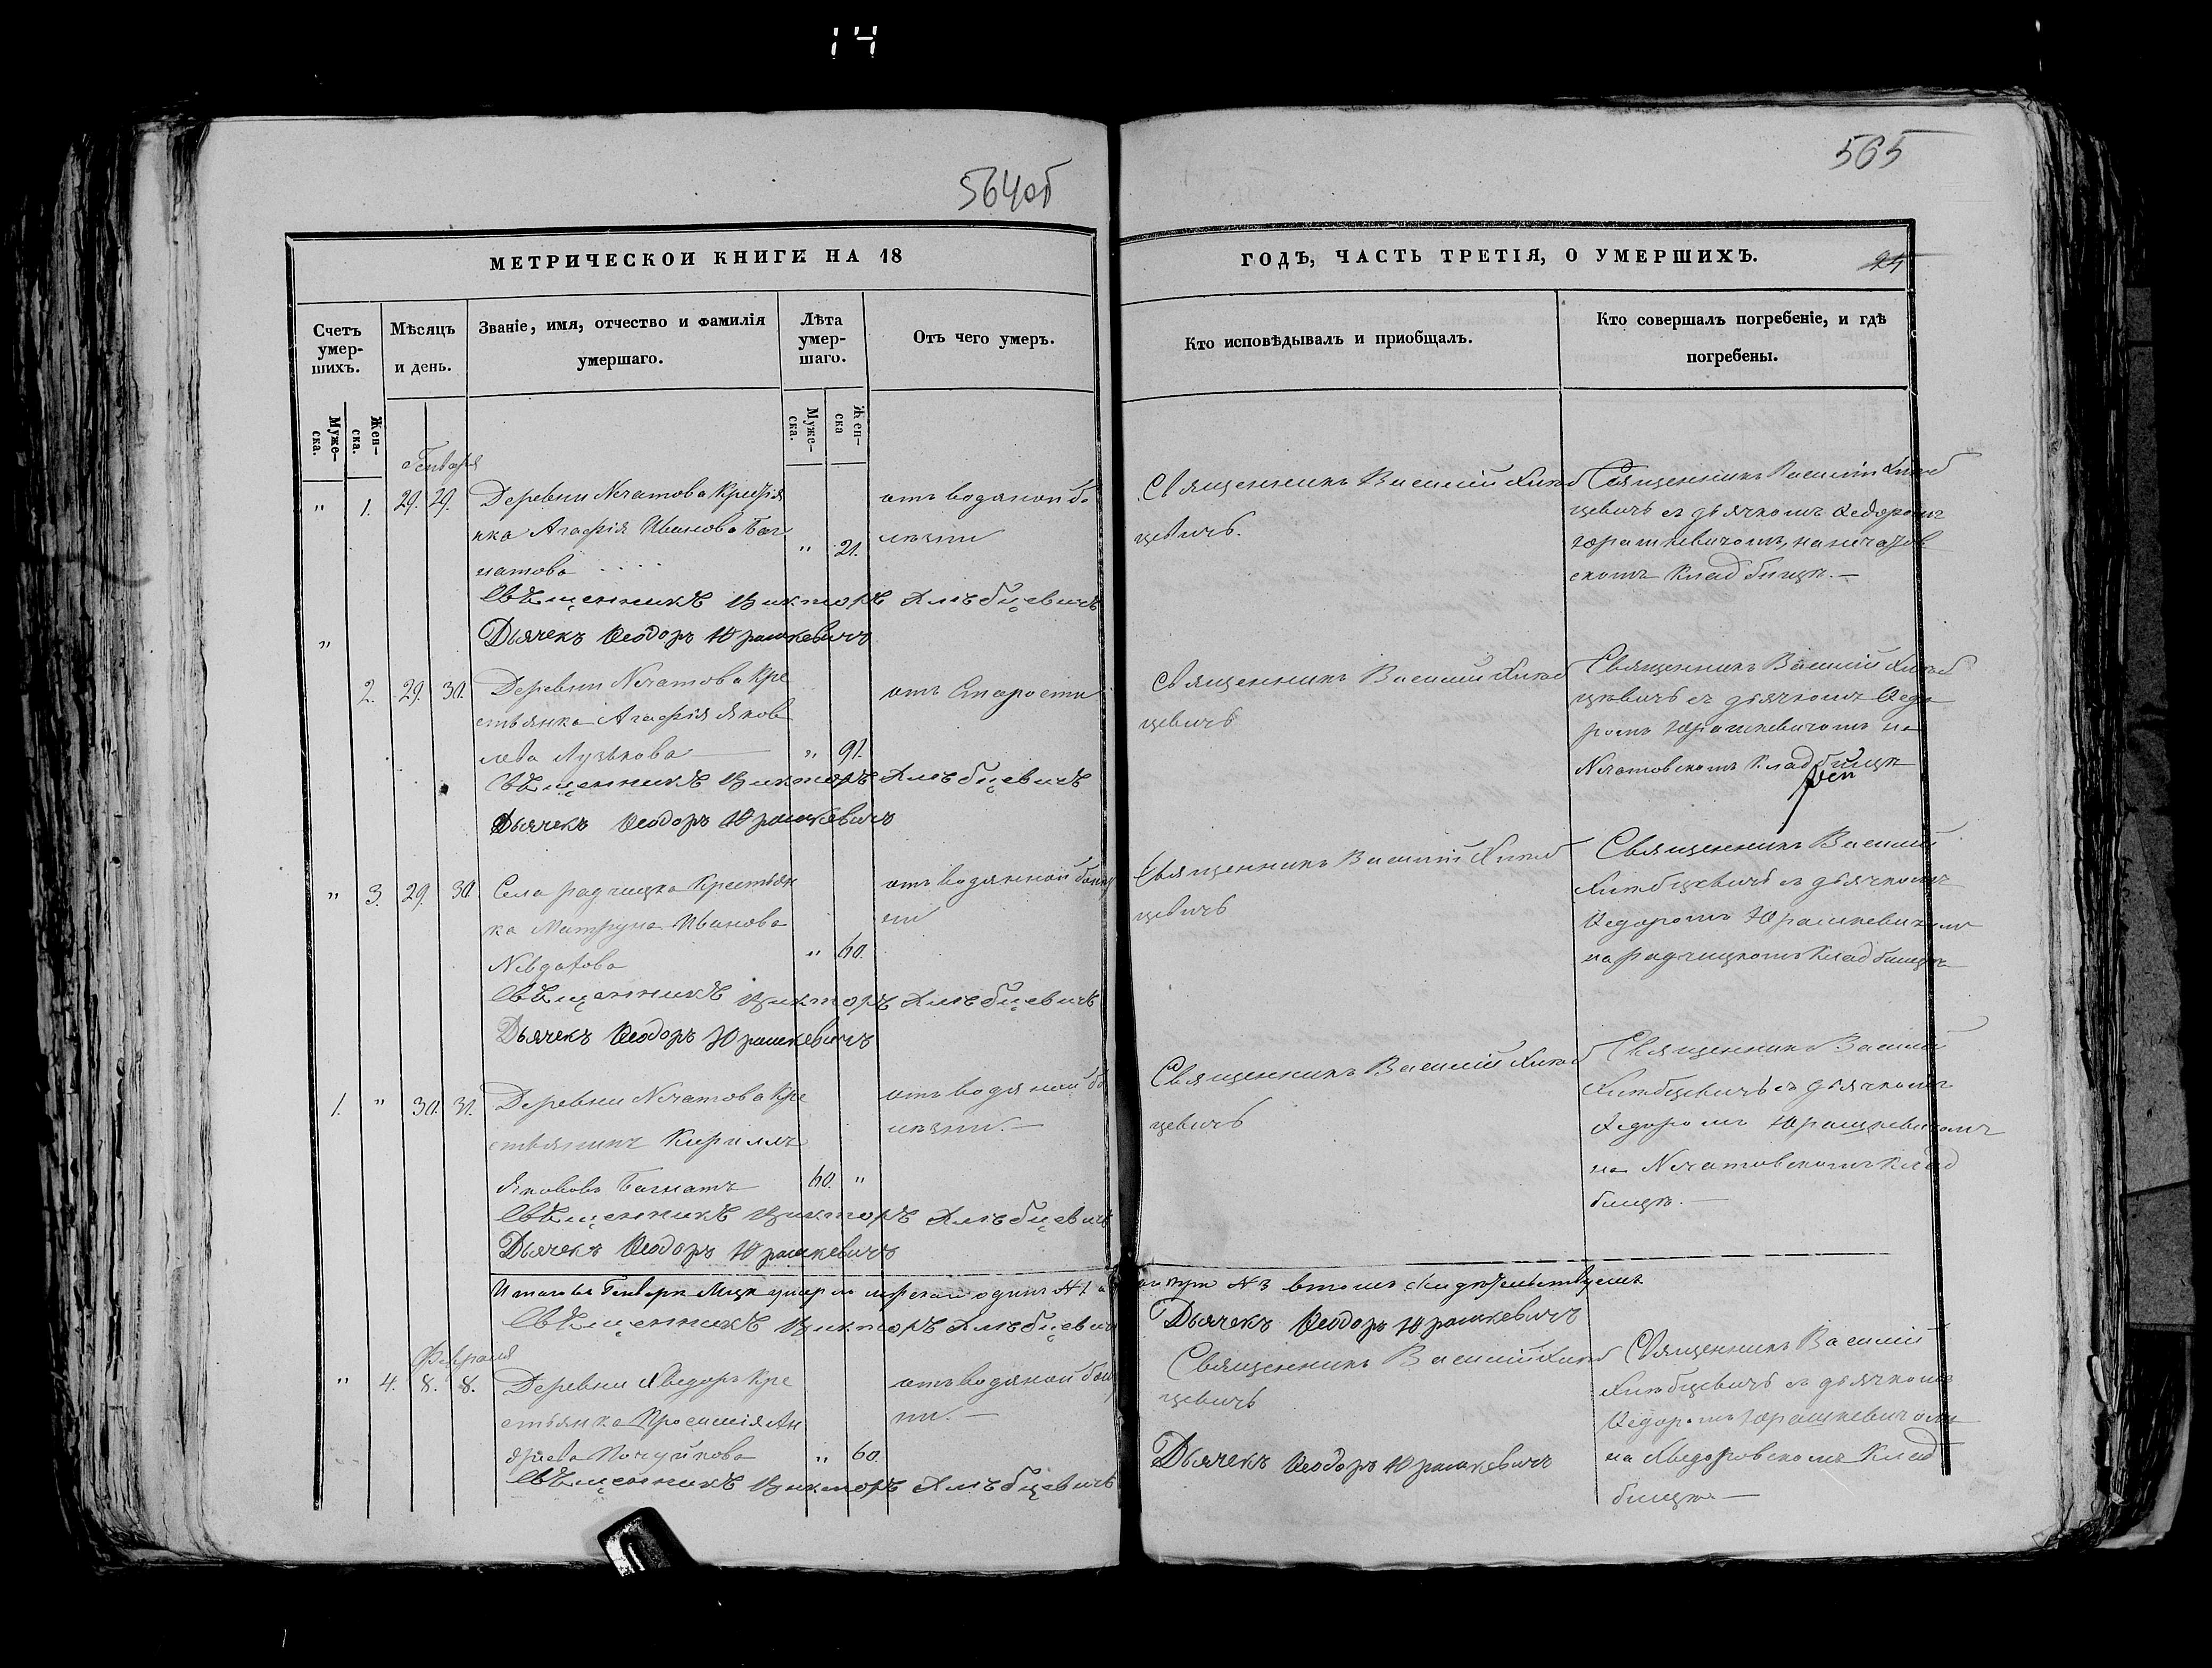 14
564об
565
МЕТРИЧЕСКОИ КНИГИ НА 18
ГОДЪ, ЧАСТЬ ТРЕТІЯ, О УМЕРШИХЪ.
24
Счетъ умер-шихъ.
Мѣсяцъ и день.
Званіе, имя, отчество и фамилія умершаго.
Лѣта умер-шаго.
Отъ чего умеръ.
Кто исповѣдывалъ и приобщалъ.
Кто совершалъ погребеніе, и гдѣ погребены.
Муже-ска.
Жен-ска.
Муже-ска.
Жен-ска
Генваря
" 1. 29. 29.
Деревни Нечатова Кресть
янка Агафія Иванова Баг
натова
" 21.
отъ водяной бо
лѣзни
Священникъ Василій Хлѣб
цевичъ.
Священникъ Василій Хлѣб
цевичъ съ дьячкомъ Ѳедоромъ
Юрашкевичомъ, на нечатов
скомъ Кладбищѣ. —
Священникъ Викторъ Хлѣбцевичъ
Дьячекъ Ѳеодоръ Юрашкевичъ
"
2. 29. 30.
Деревни Нечатова Кре
стьянка Агафія Яков
лева Лузькова
" 91.
отъ Старости
Священникъ Василій Хлѣб
цевичъ
Священникъ Василій Хлѣб
цевичъ съ дьячкомъ Ѳедо
ромъ Юрашкевичомъ на
Нечатовскомъ Кладбищѣ
Священникъ Викторъ Хлѣбцевичъ
Дьячекъ Ѳеодоръ Юрашкевичъ
" 3. 29. 30.
Села радчицка Крестьян
ка Матруна Иванова
" 60.
отъ водянной болѣз
ни
Священникъ Василій Хлѣб
цевичъ
Священникъ Василій
Хлѣбцевичъ съ дьячкомъ
Ѳедоромъ Юрашкевичомъ
на радчицкомъ Кладбищѣ
Священникъ Викторъ Хлѣбцевичъ
Дьячекъ Ѳеодоръ Юрашкевичъ
1. " 30. 31.
Деревни Нечатова Кре
стьянинъ Кириллъ
Якововъ Багнатъ
60. "
отъ водяной бо
лѣзни. —
Священникъ Василій Хлѣб
цевичъ
Священникъ Василій
Хлѣбцевичъ съ дьячкомъ
Ѳедоромъ Юрашкевичомъ
на Нечатовскомъ Клад
бищѣ. —
Священникъ Викторъ Хлѣбцевичъ
Дьячекъ Ѳеодоръ Юрашкевичъ
Итого въ Генварѣ Мцѣ умерло одинъ №1 №3 въ томъ свидѣтельствуемъ
Священникъ Викторъ Хлѣбцевичъ
Дьячекъ Ѳеодоръ Юрашкевичъ
Февраля
" 4. 8. 8.
Деревни Хведоръ Кре
стьянка Просимія Ан
дріева Почуйкова
" 60.
отъ водяной болѣз
ни. —
Священникъ Василій Хлѣб
цевичъ
Священникъ Василій
Хлѣбцевичъ съ дьячкомъ
Ѳедоромъ Юрашкевичомъ
на Хведоровскомъ Клад
бищѣ —
Священникъ Викторъ Хлѣбцевичъ
Дьячекъ Ѳеодоръ Юрашкевичъ